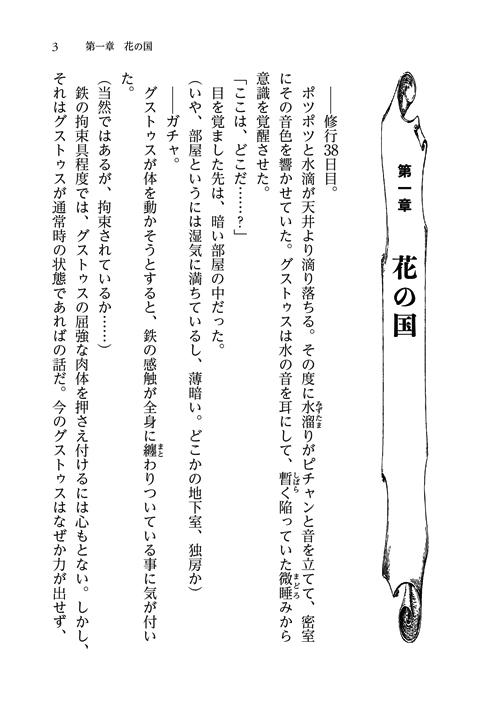 3　第一章　花の国
第一章
花の国
――修行38日目。
ポツポツと水滴が天井より滴り落ちる。その度に水溜りがピチャンと音を立てて、密室
にその音色を響かせていた。グストゥスは水の音を耳にして、暫く陥っていた微睡みから
意識を覚醒させた。
「ここは、どこだ……？」
目を覚ました先は、暗い部屋の中だった。
（いや、部屋というには湿気に満ちているし、薄暗い。どこかの地下室、独房か）
――ガチャ。
グストゥスが体を動かそうとすると、鉄の感触が全身に纏わりついている事に気が付い
た。
（当然ではあるが、拘束されているか……）
鉄の拘束具程度では、グストゥスの屈強な肉体を押さえ付けるには心もとない。しかし、
それはグストゥスが通常時の状態であればの話だ。今のグストゥスはなぜか力が出せず、